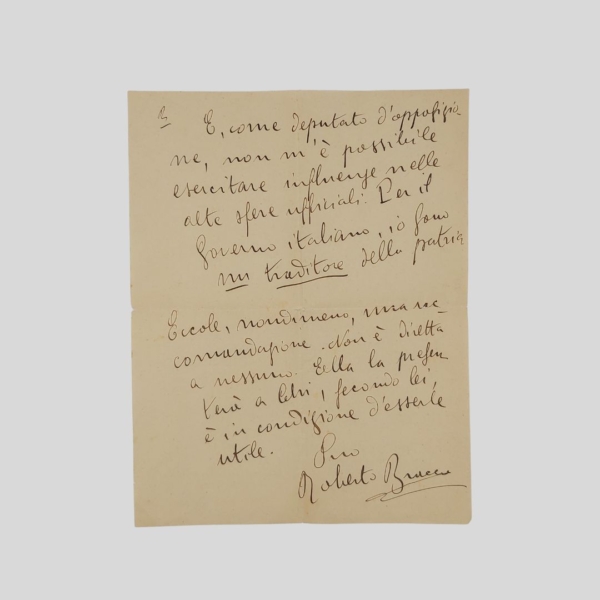 E, come deputato d'opposizio-
ne, non m'è possibile
esercitare influenze nelle
alte sfere ufficiali. Per il
Governo italiano, io sono
un traditore della patria
Eccole, nondimeno, una rac-
comandazione. Non è diretta
a nessuno. Ella la presen-
terà a chi, secondo lei,
è in condizione d'esserle
utile.
Suo
Roberto Bracco